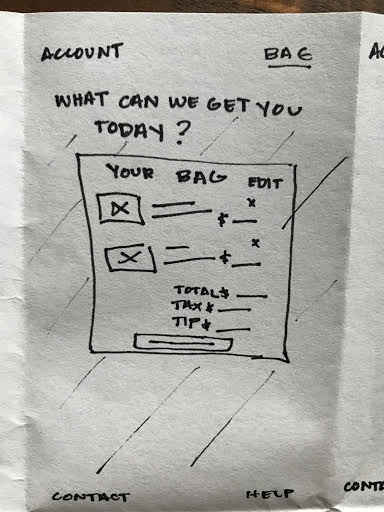 ACCOUNT BAG
WHAT CAN WE GET YOU
TODAY?
YOUR BAG EDIT
x
$
x
$
TOTAL $
TAX $
TIP $
CONTACT HELP